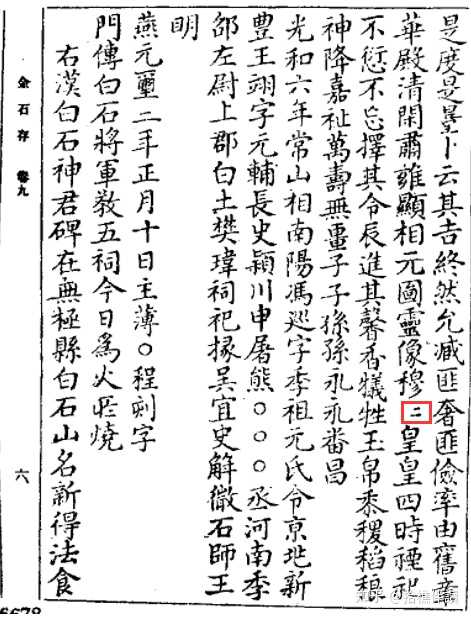 是度是量卜云其吉終然允臧匪奢匪儉率由舊章
華殿清閑肅雍顯相元圖靈像穆二皇皇四時禋祀
不愆不忘擇其令辰進其馨香犧牲玉帛黍稷稻粮
神降嘉祉萬壽無畺子子孫孫永永番昌
光和六年常山相南陽馮巡字季祖元氏令京地新
豊王翊字元輔長史潁川申屠熊○○○丞河南李
邵左尉上郡白土樊瑋祠祀掾吴宜史解微石師王
明
燕元璽二年正月十日主薄○程剌字
門傳白石將軍教五祠今日為火所燒
右漢白石神君碑在無極縣白石山名新得法食
金石存 卷九
六
6678
知乎